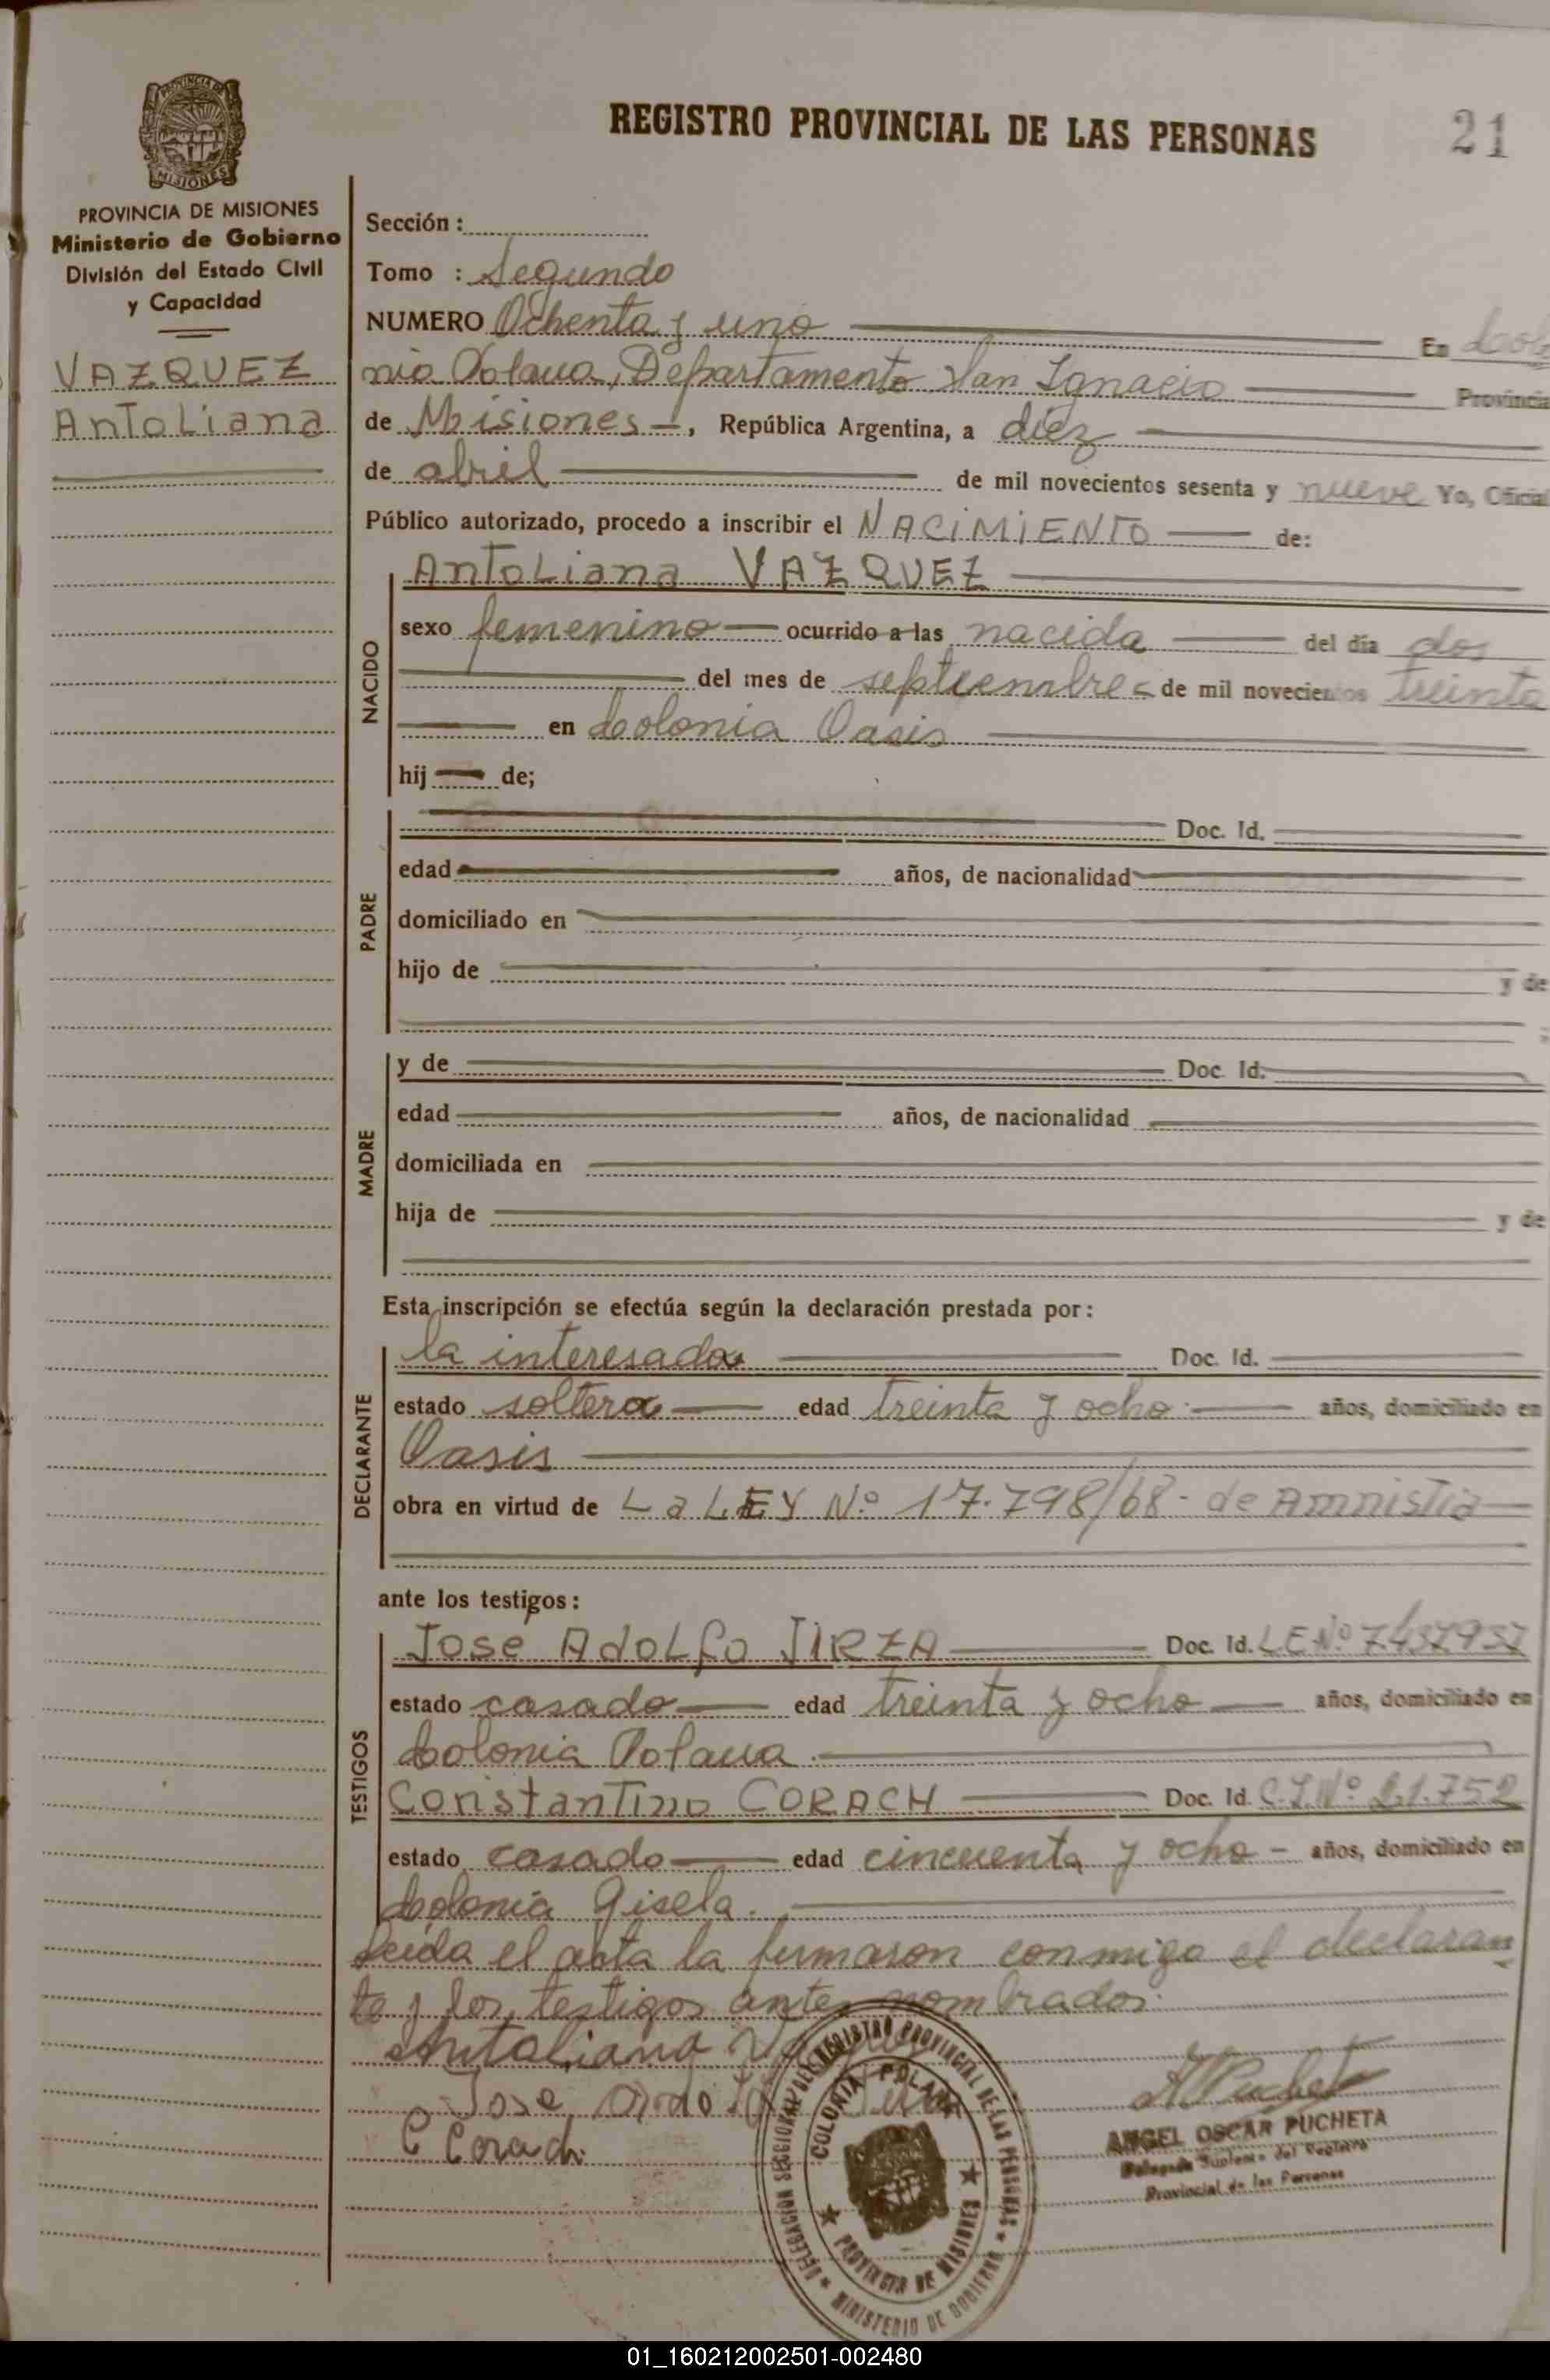 REGISTRO PROVINCIAL DE LAS PERSONAS
21
PROVINCIA DE MISIONES
Ministerio de Gobierno
División del Estado Civil
y Capacidad
VAZQUEZ
Antoliana
Sección :
Tomo : Segundo
NUMERO Ochenta y uno En Colo
nia Polana, Departamento San Ignacio Provincia
de Misiones, República Argentina, a diez
de abril de mil novecientos sesenta y nueve Yo, Oficial
Público autorizado, procedo a inscribir el NACIMIENTO de:
NACIDO
Antoliana VAZQUEZ
sexo femenino ocurrido a las nacida del día dos
del mes de septiembre de mil novecientos treinta
en Colonia Oasis
hij de;
PADRE
Doc. Id.
edad años, de nacionalidad
domiciliado en
hijo de y de
MADRE
y de Doc. Id.
edad años, de nacionalidad
domiciliada en
hija de y de
Esta inscripción se efectúa según la declaración prestada por:
DECLARANTE
la interesada Doc. Id.
estado soltera edad treinta y ocho años, domiciliado en
Oasis
obra en virtud de La LEY Nº 17.798/68- de Amnistia
ante los testigos:
TESTIGOS
Jose Adolfo JIRZA Doc. Id. L E Nº 7.437937
estado casado edad treinta y ocho años, domiciliado en
Colonia Polana.
Constantino CORACH Doc. Id. C.I.Nº 21.752
estado casado edad cincuenta y ocho - años, domiciliado en
Colonia Gisela.
Leída el acta la firmaron conmigo el declaran
te y los testigos antes nombrados.
Antoliana
Jose
C Corach
ANGEL OSCAR PUCHETA
Delegado Suplente del Registro
Provincial de las Personas
DELEGACION SECCIONAL DEL REGISTRO PROVINCIAL DE LAS PERSONAS ★ MINISTERIO DE GOBIERNO ★
COLONIA POLANA
★ PROVINCIA DE MISIONES ★
01_160212002501-002480